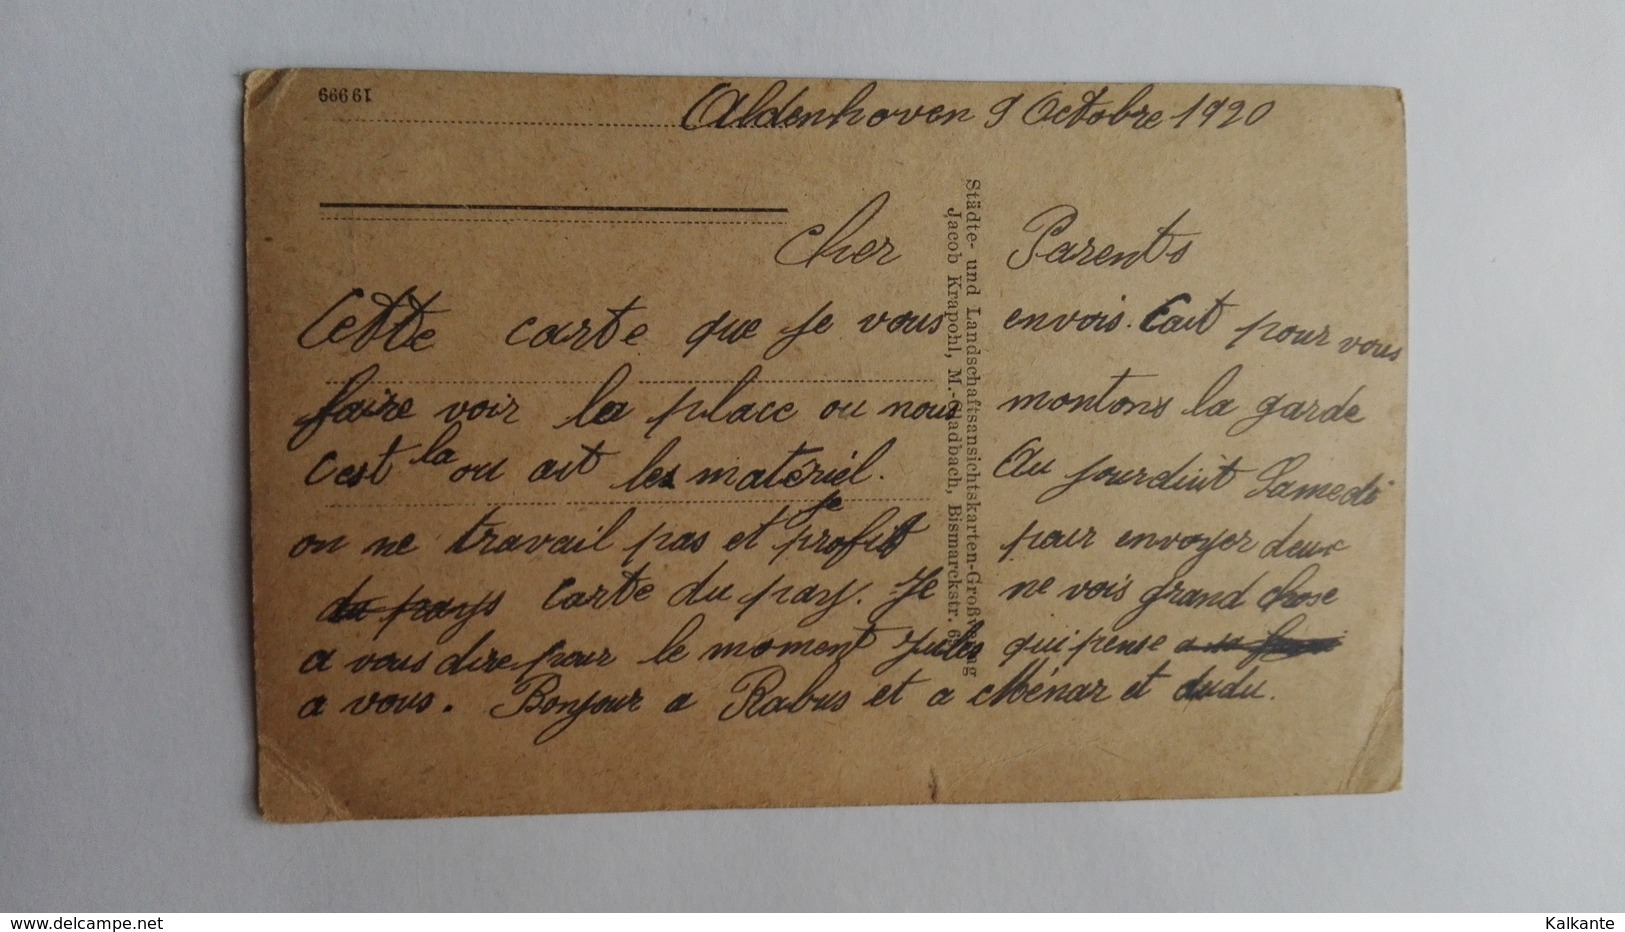 19 999
Aldenhoven 9 Octobre 1920
Cher Parents
Cette carte que je vous envois. Cait pour vous
faire voir la place ou nous montons la garde
c'est la ou ait les matériel. Au jourdiut Samedi
on ne travail pas et je profit pour envoyer deux
du pays Carte du pay. Je ne vois grand chose
a vous dire pour le moment Jules qui pense
a vous. Bonjour a Rabus et a Ménar et dudu.
Städte- und Landschaftsansichtskarten-Großverlag
Jacob Krapohl, M.-Gladbach, Bismarckstr.
www.delcampe.net
Kalkante